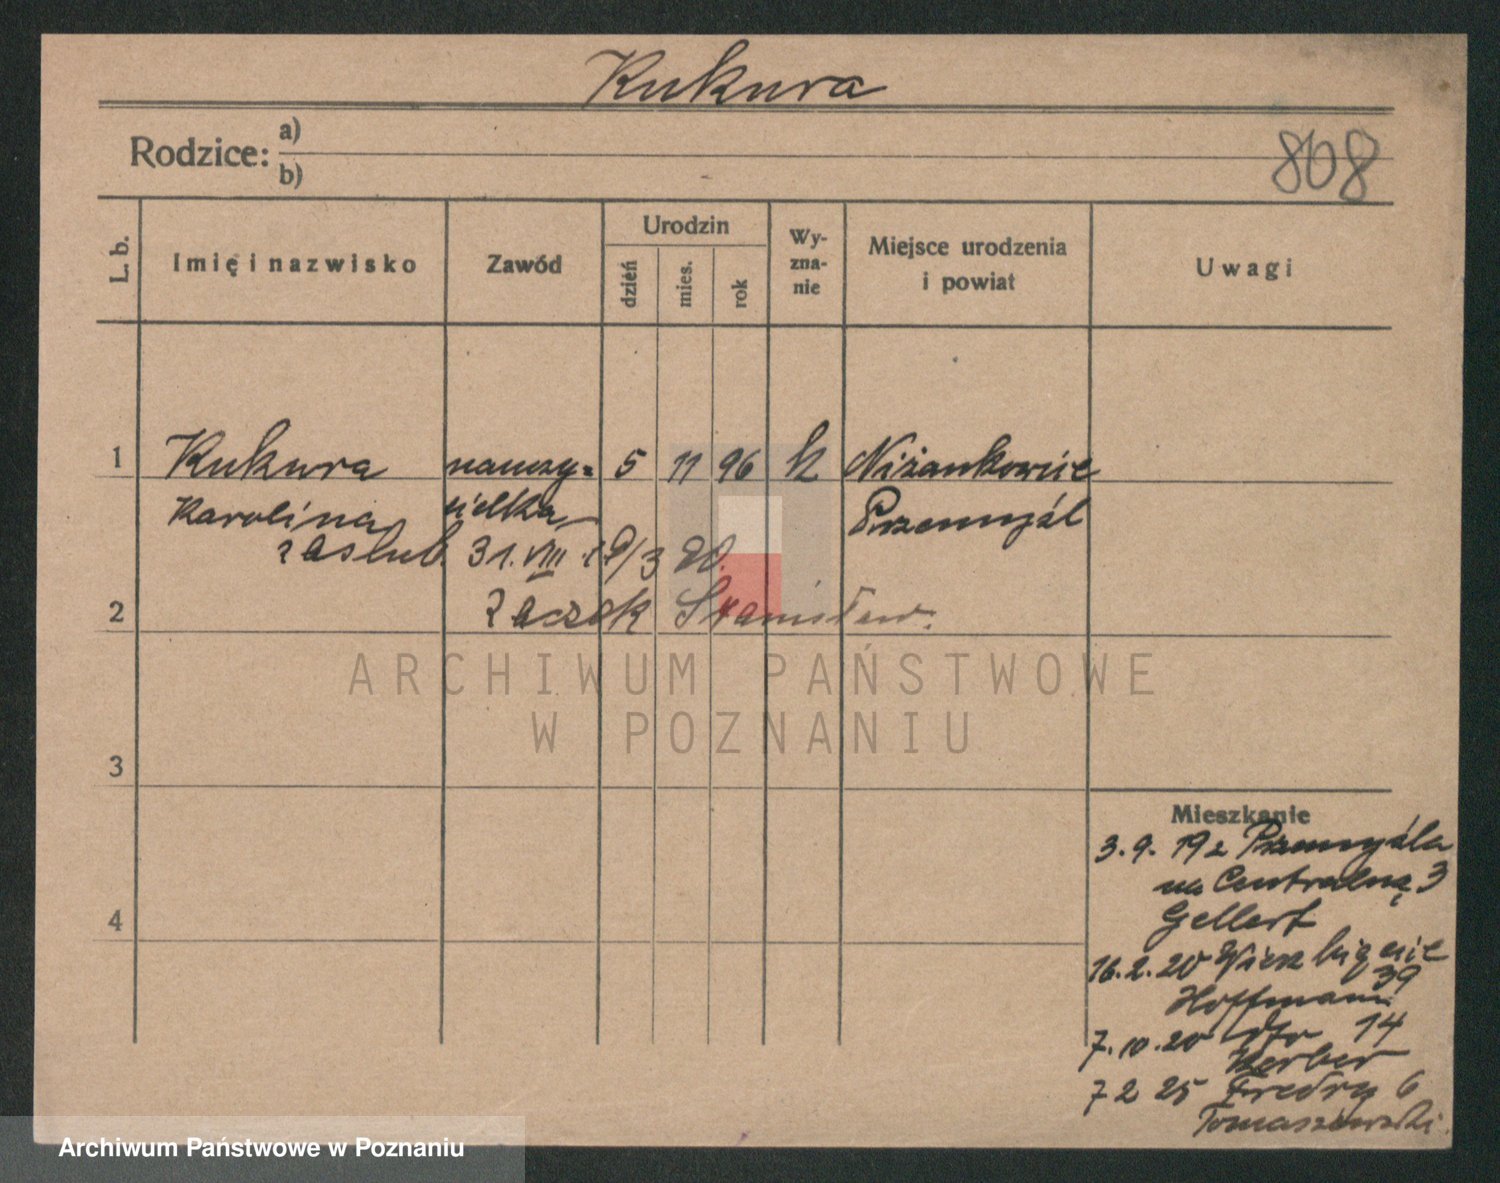 Kukura
Rodzice: a)
b)
808
L. b.
Imię i nazwisko
Zawód
Urodzin
dzień
mies.
rok
Wy-
zna-
nie
Miejsce urodzenia
i powiat
Uwagi
1 Kukura nauczy= 5 11 96 k Niżankowice
Karolina cielka Przemyśl
zaślub. 31.VIII 19/3 20.
2 Stanisław.
ARCHIWUM PAŃSTWOWE
W POZNANIU
3
4
Mieszkanie
3.9.19 z Przemyśla
na Centralną 3
Gellert
16.2.20 Wierzbięcie
39
Hoffmann
7.10.20 dto 14
Kerber
7 2 25 Fredry 6
Tomaszewski.
Archiwum Państwowe w Poznaniu